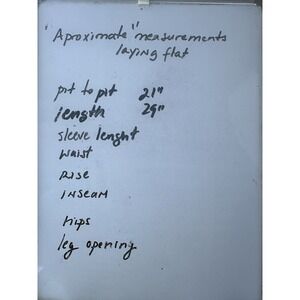 "Aproximate" measurements
laying flat
pit to pit 21"
length 29"
sleeve lenght
waist
Rise
inseam
hips
leg opening